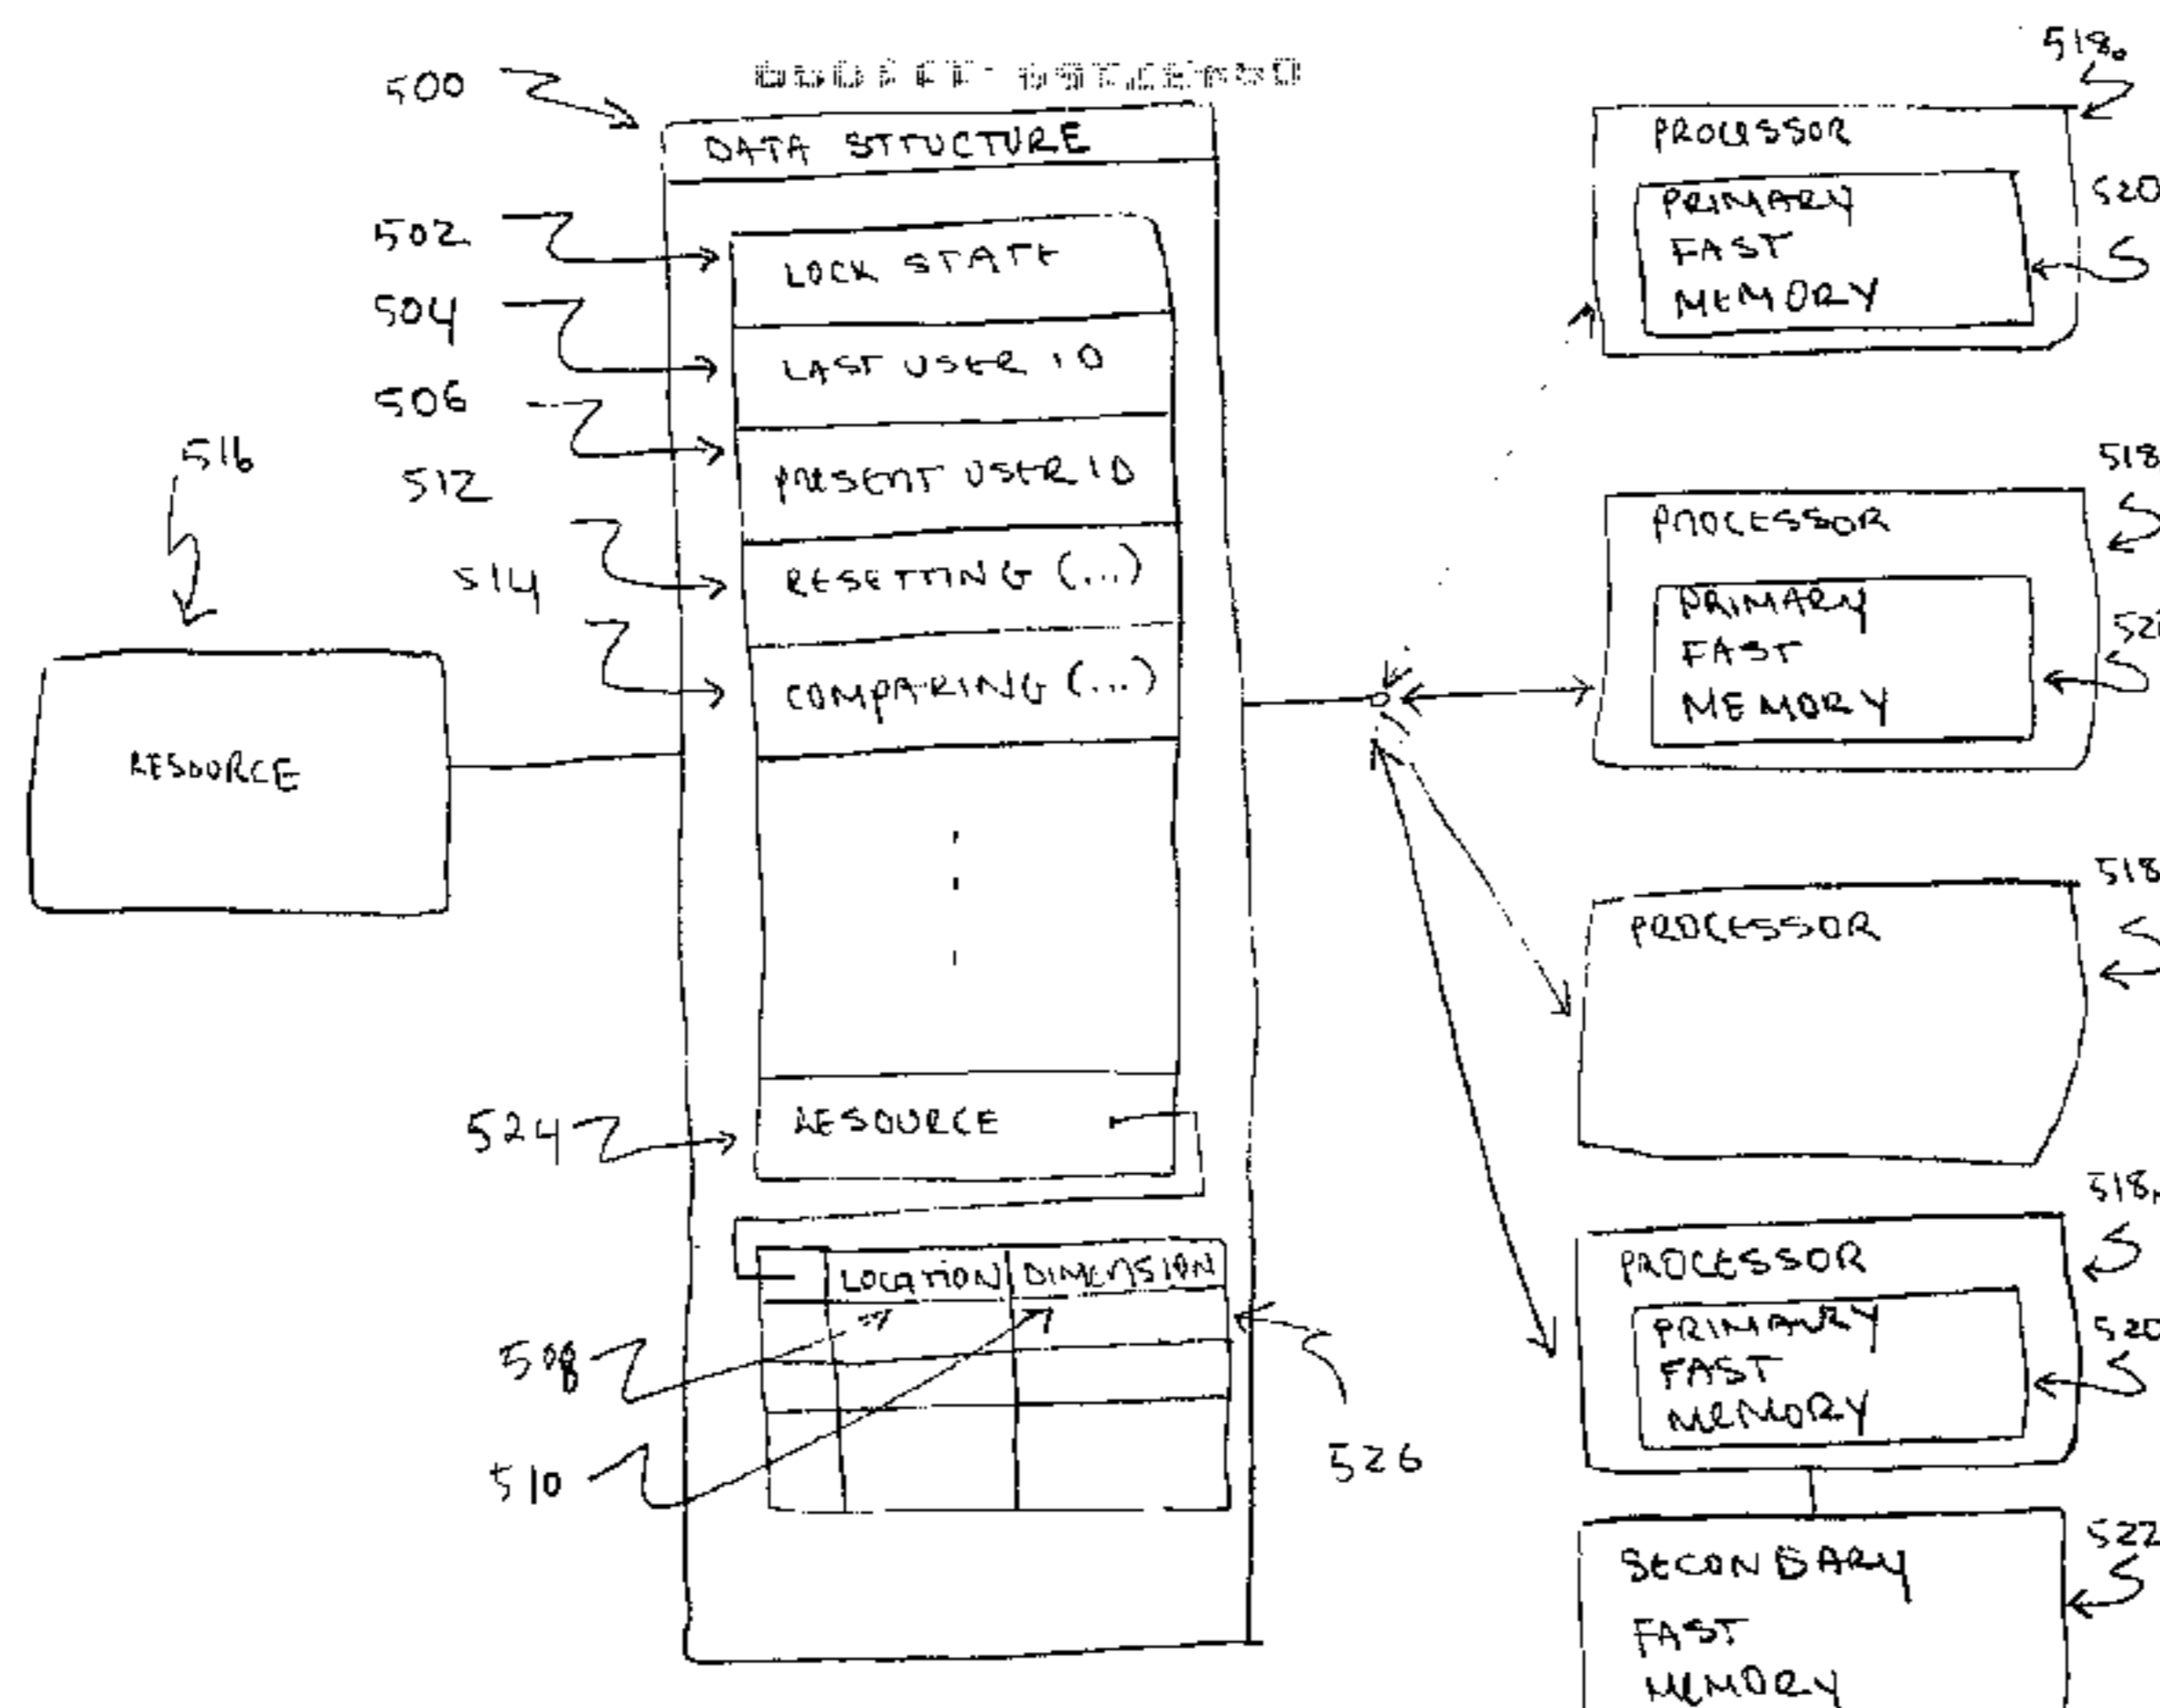 500
DATA STRUCTURE
502
LOCK STATE
504
LAST USER ID
506
PRESENT USER ID
512
RESETTING (...)
514
COMPARING (...)
516
RESOURCE
524
RESOURCE
LOCATION DIMENSION
508
510
526
518
PROCESSOR
520
PRIMARY
FAST
MEMORY
518
PROCESSOR
PRIMARY
FAST
MEMORY
518
PROCESSOR
518
PROCESSOR
520
PRIMARY
FAST
MEMORY
522
SECONDARY
FAST
MEMORY